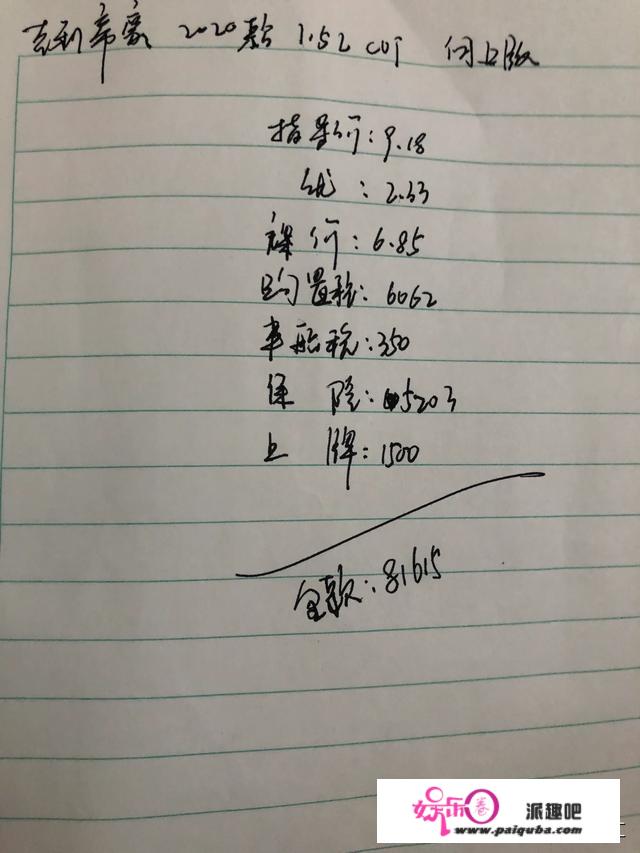 吉利帝豪 2020款 1.5L CVT 向上版
指导价:9.18
优:2.33
裸价:6.85
购置税:6062
车船税:350
保险:5203
上牌:1500
全款:81615
娱乐圈 派趣吧
www.paiquba.com